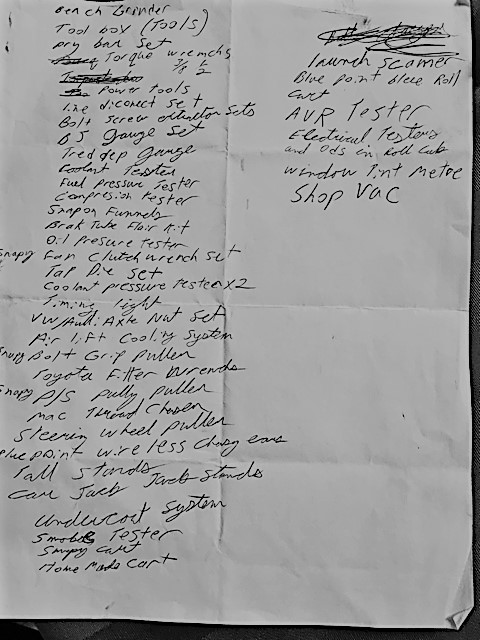 Bench Grinder
Tool box (Tools)
pry bar Set
Torque wrenchs
3/8 1/2
Power Tools
Line diconect set
Bolt screw Sets
65 gauge Set
Tred dep Gauge
Coolant Tester
Fuel pressure Tester
Compresion Tester
Snapon Funnels
Brak Tube Flair Kit
Oil Presure Tester
Snapy Fan Clutch wrench Set
Tap Die Set
Coolant pressure Tester x2
Timing light
VW/Audi Axle Nut Set
Air lift Cooling System
Snapy Bolt Grip Puller
Toyota Filter Wrenchs
Snapy P/S pully puller
Mac Thread
Steering wheel puller
Blue point wireless
Tall Stands
Car Jack Jack Stands
Undercoat System
Tester
Snapy Cart
Home Made Cart
launch Scanner
Blue Point blue Roll
Cart
AVR Tester
Electrical Testers
and Ods in Roll
Window Tint Metre
Shop Vac